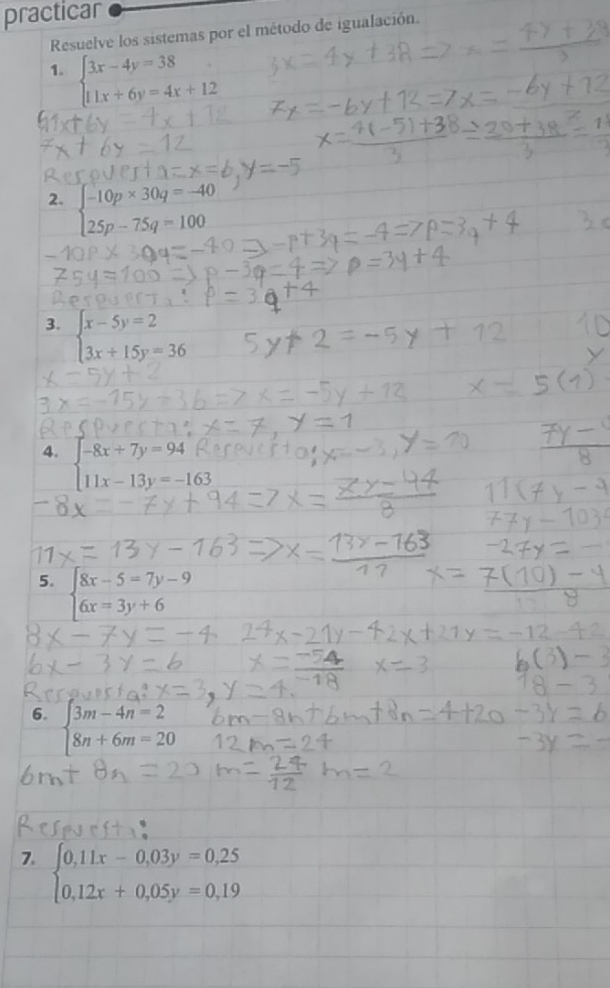 practicar
Resuelve los sistemas por el método de igualación.
1. 3x − 4y = 38
11x + 6y = 4x + 12
3x = 4y + 38 => x =
7x = -6y + 12 =
11x + 6y = 4x + 12
7x + 6y = 12
x = 4(-5)+38
3
Respuesta = x = 6, y = -5
2. −10p × 30q = −40
25p − 75q = 100
-10p × 30q = -40 => -p + 3q = -4 => p = 3q + 4
75y = 100 => p - 3q = 4 => p = 3y + 4
p = 3q + 4
3. x − 5y = 2
3x + 15y = 36
5y + 2 = -5y + 12
x = 5y + 2
3x = -15y + 36 => x = -5y + 12
x = 5(1)
Respuesta: x = 7, y = 1
4. −8x + 7y = 94
11x − 13y = −163
Respuesta: x = -3, y = 10
-8x = -7y + 94 => x = 7y - 94
8
11x = 13y - 163 => x = 13y - 163
11
-27y =
x = 7(10) -
8
5. 8x − 5 = 7y − 9
6x = 3y + 6
8x - 7y = -4 24x - 21y - 42x + 21y = -12 - 42
6x - 3y = 6 x = -54 x = 3 6(3) -
-18 18 - 3
Respuesta: x = 3, y = 4.
6. 3m − 4n = 2
8n + 6m = 20
6m - 8n + 6m + 8n = 4 + 20 -3y = 6
12m = 24 -3y = -
6m + 8n = 20 m = 24 m = 2
12
Respuest
7. 0,11x − 0,03y = 0,25
0,12x + 0,05y = 0,19